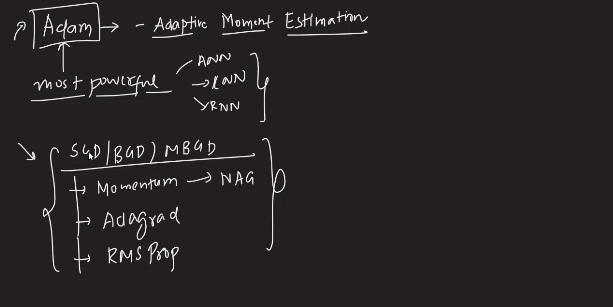 Adam → - Adaptive Moment Estimation
most powerful
ANN
→ CNN
RNN
SGD/BGD/MBGD
→ Momentum → NAG
→ Adagrad
→ RMSProp